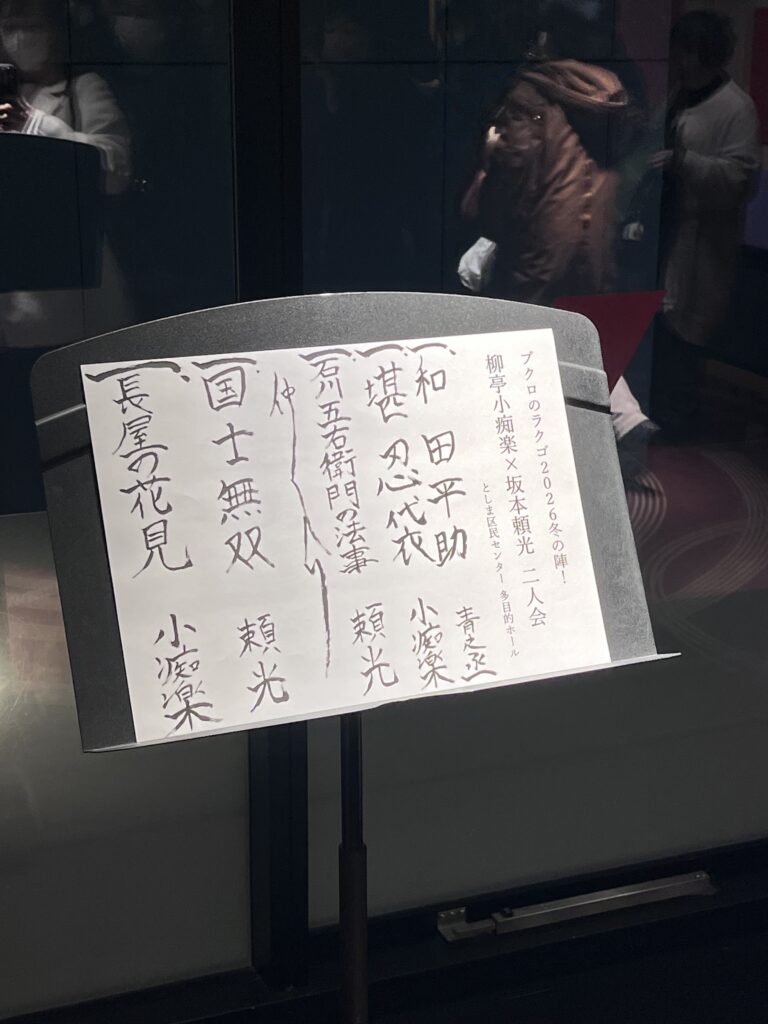 ブクロのラクゴ2026冬の陣!
柳亭小痴楽×坂本頼光 二人会
としま区民センター 多目的ホール
一、和田平助 青之丞
一、堪忍袋 小痴楽
一、石川五右衛門の法事 頼光
仲入り
一、国士無双 頼光
一、長屋の花見 小痴楽